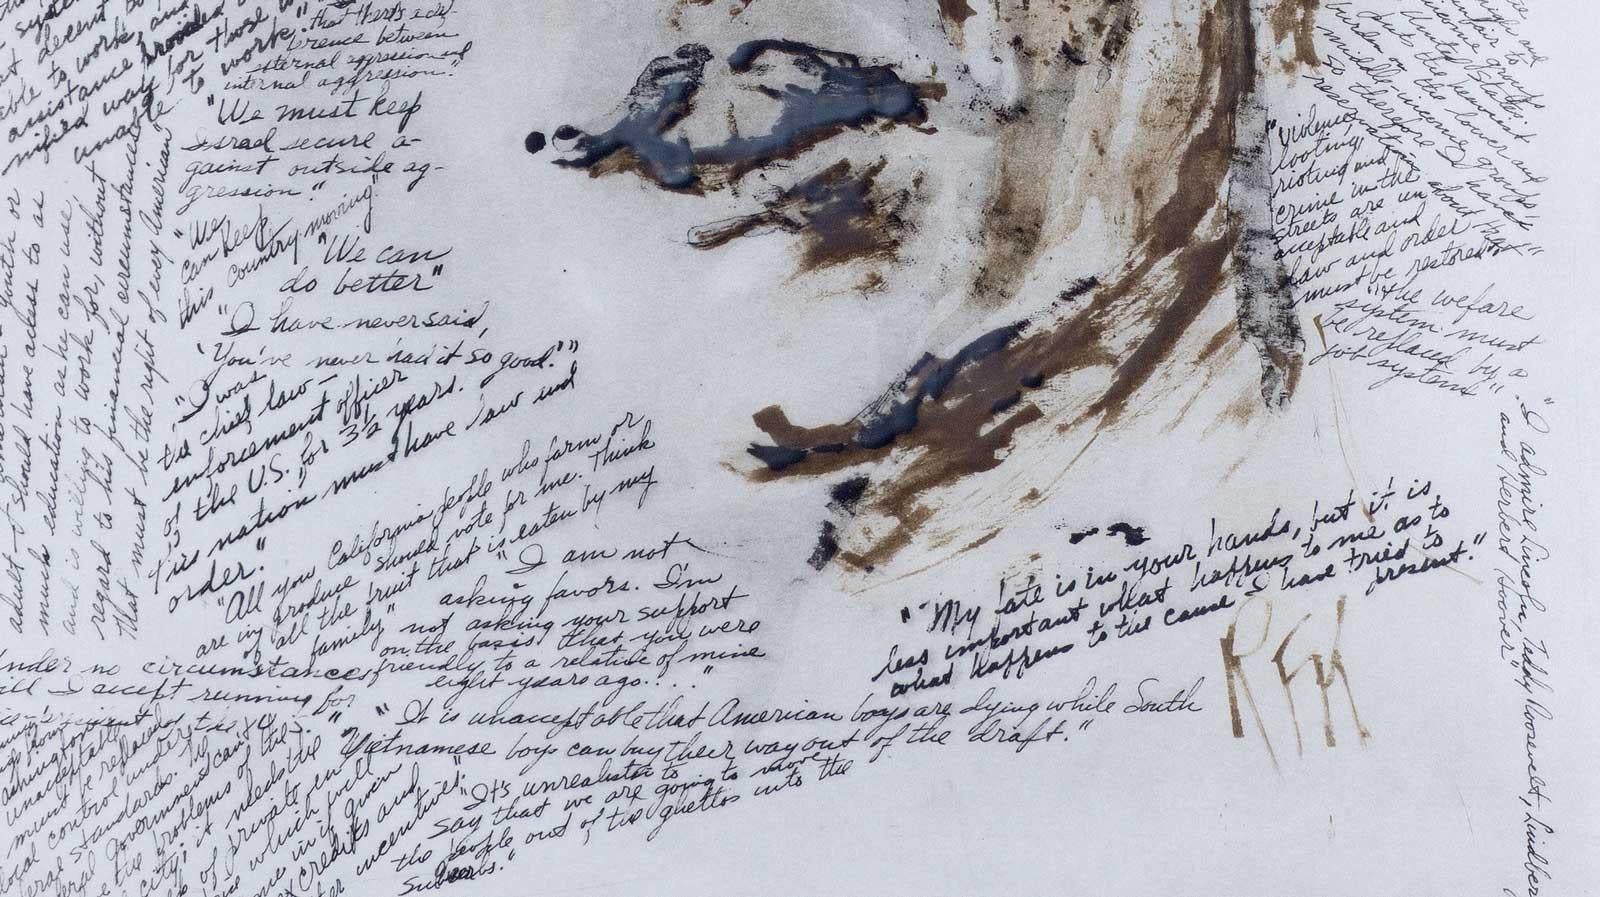 system
decent
able to work, and
assistance provided
nified way for those
unable to work."
that there's a dif-
ference between
external aggression and
internal aggression."
"We must keep
Israel secure a-
gainst outside ag-
gression"
"We
can keep
this country moving."
"We can
do better"
"I have never said,
'You've never had it so good.'"
"I was
the chief law-
enforcement officer
of the U.S. for 3½ years.
This nation must have law and
order."
youth or
adult - should have access to as
much education as he can use
and is willing to work for, without
regard to his financial circumstances
That must be the right of every American"
"All you California people who farm or
are in produce should vote for me. Think
of all the fruit that is eaten by my
family"
"I am not
asking favors. I'm
not asking your support
on the basis that you were
friendly to a relative of mine
eight years ago. . . ."
Under no circumstances
will I accept running for
unacceptable
must be replaced
local control under
standards.
government can't
the problems of the
city; it needs the
of private en
which will
come in if given
credits and
incentives."
"It is unacceptable that American boys are dying while South
Vietnamese boys can buy their way out of the draft."
"It's unrealistic to
say that we are going to move
the people out of the ghettos into the
suburbs."
"My fate is in your hands, but it is
less important what happens to me as to
what happens to the cause I have tried to
present."
RFK
high and
income groups
unfair to
United States.
puts the heaviest
burden on the lower and
middle-income groups,
so therefore I have
reservations
about that"
"violence,
looting,
rioting and
crime in the
streets are un
acceptable and
law and order
must be restored"
"the welfare
system must
be replaced by a
job system"
"I admire Lincoln, Teddy Roosevelt, Lindber
and Herbert Hoover"